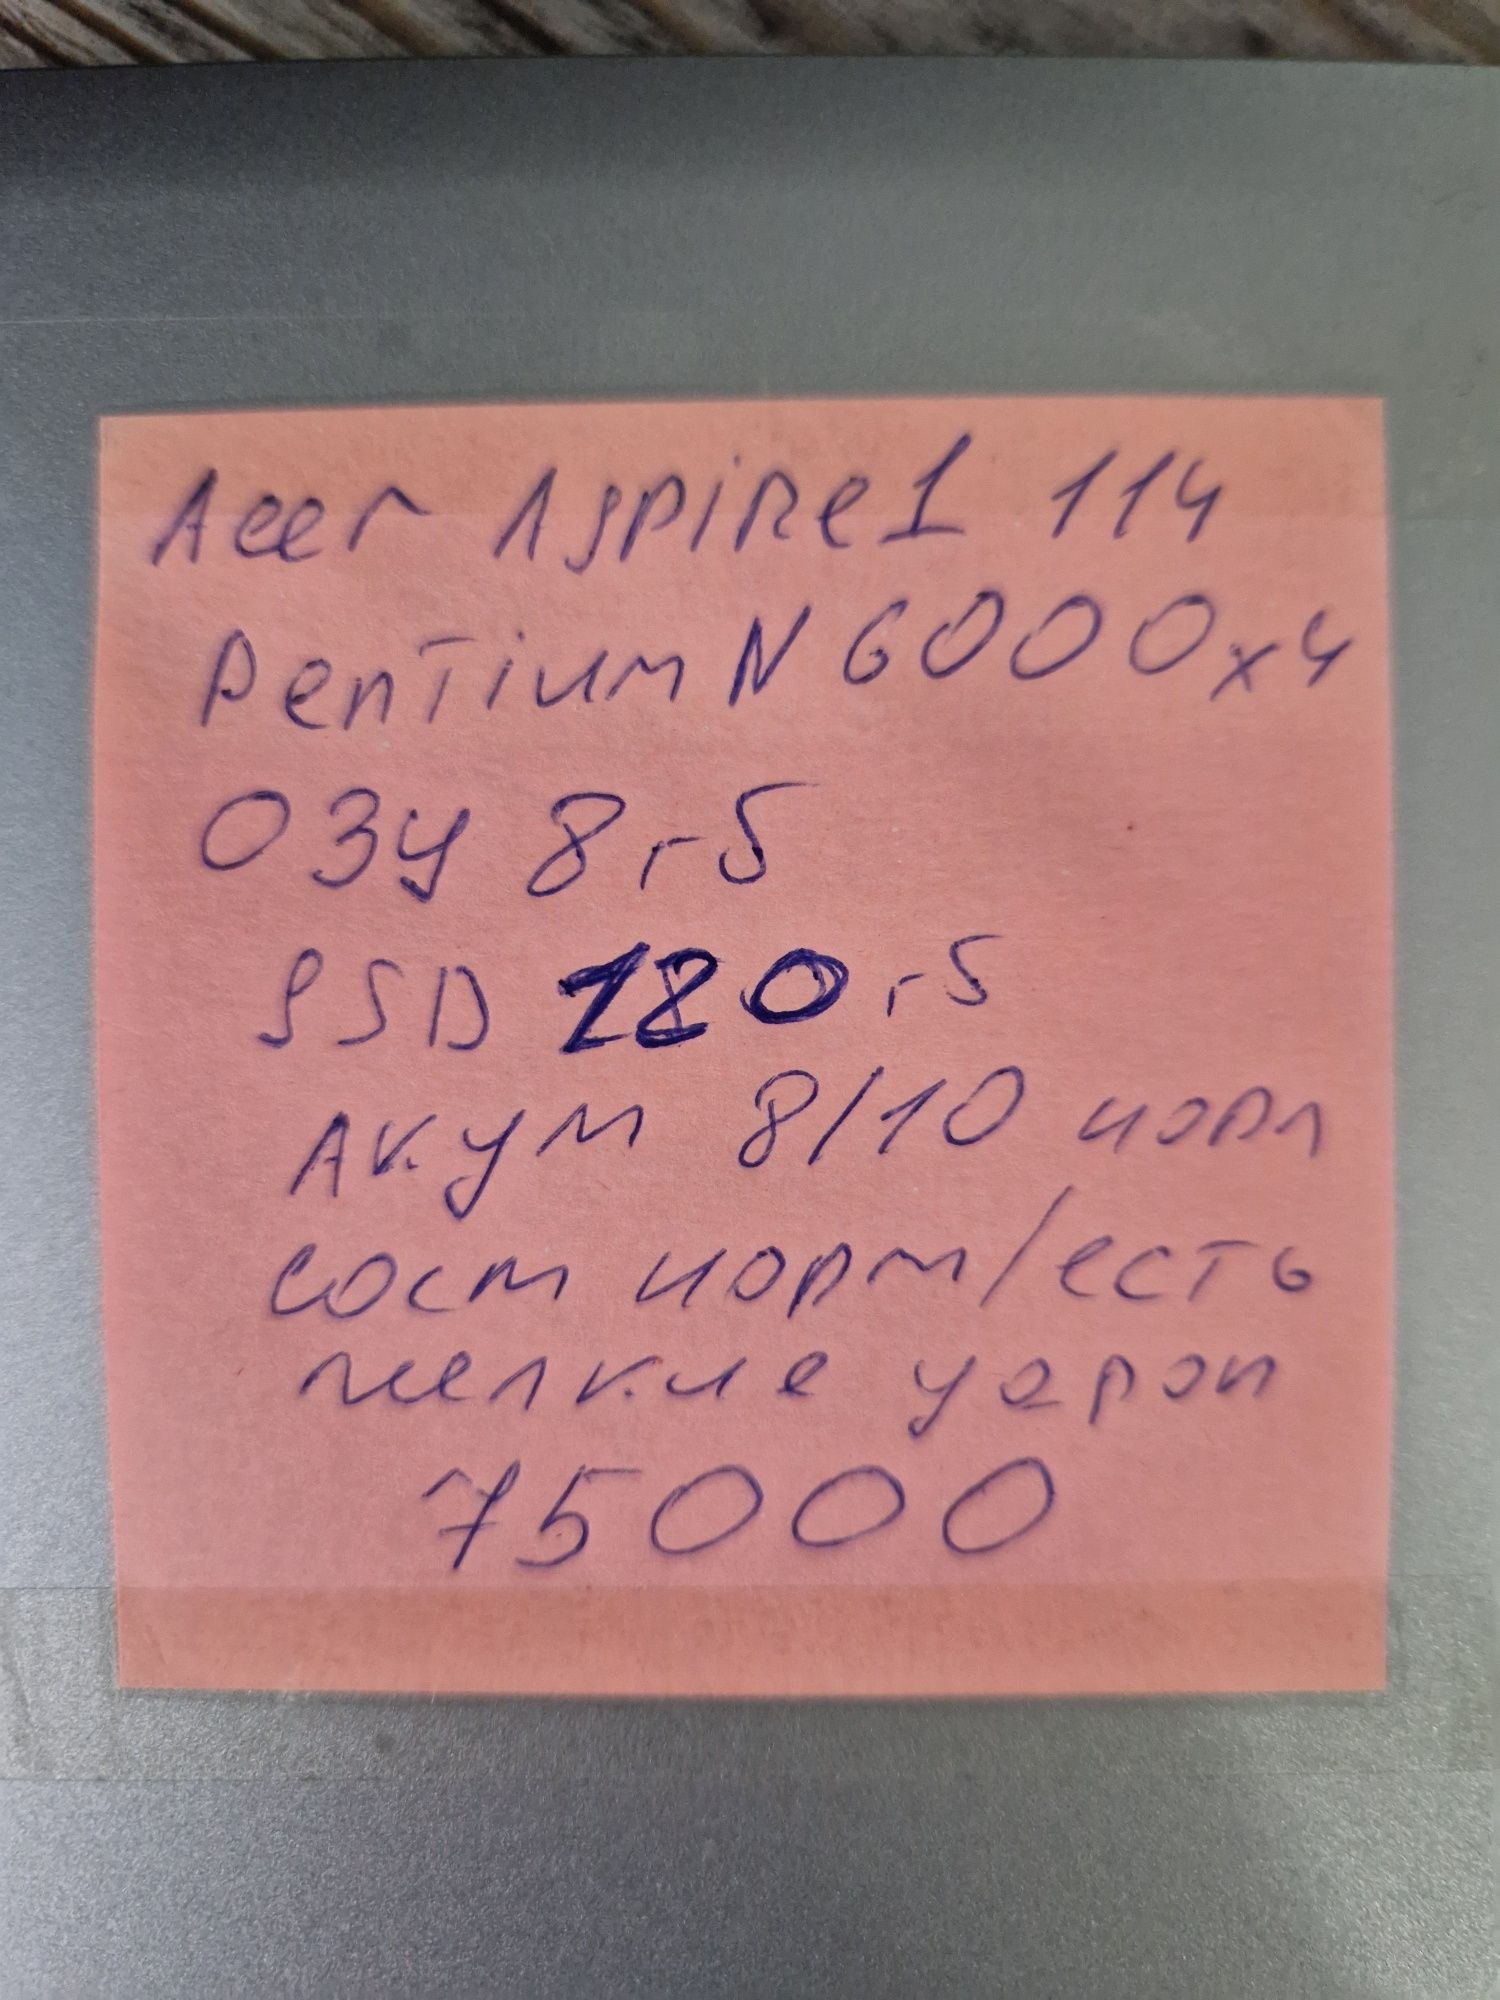 Acer Aspire 1 114
Pentium N6000x4
ОЗУ 8гб
SSD 120гб
Акум 8/10 норм
сост норм/есть
мелкие царап
75000